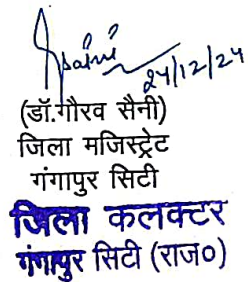 24/12/24
(डॉ.गौरव सैनी)
जिला मजिस्ट्रेट
गंगापुर सिटी
जिला कलक्टर
गंगापुर सिटी (राज०)